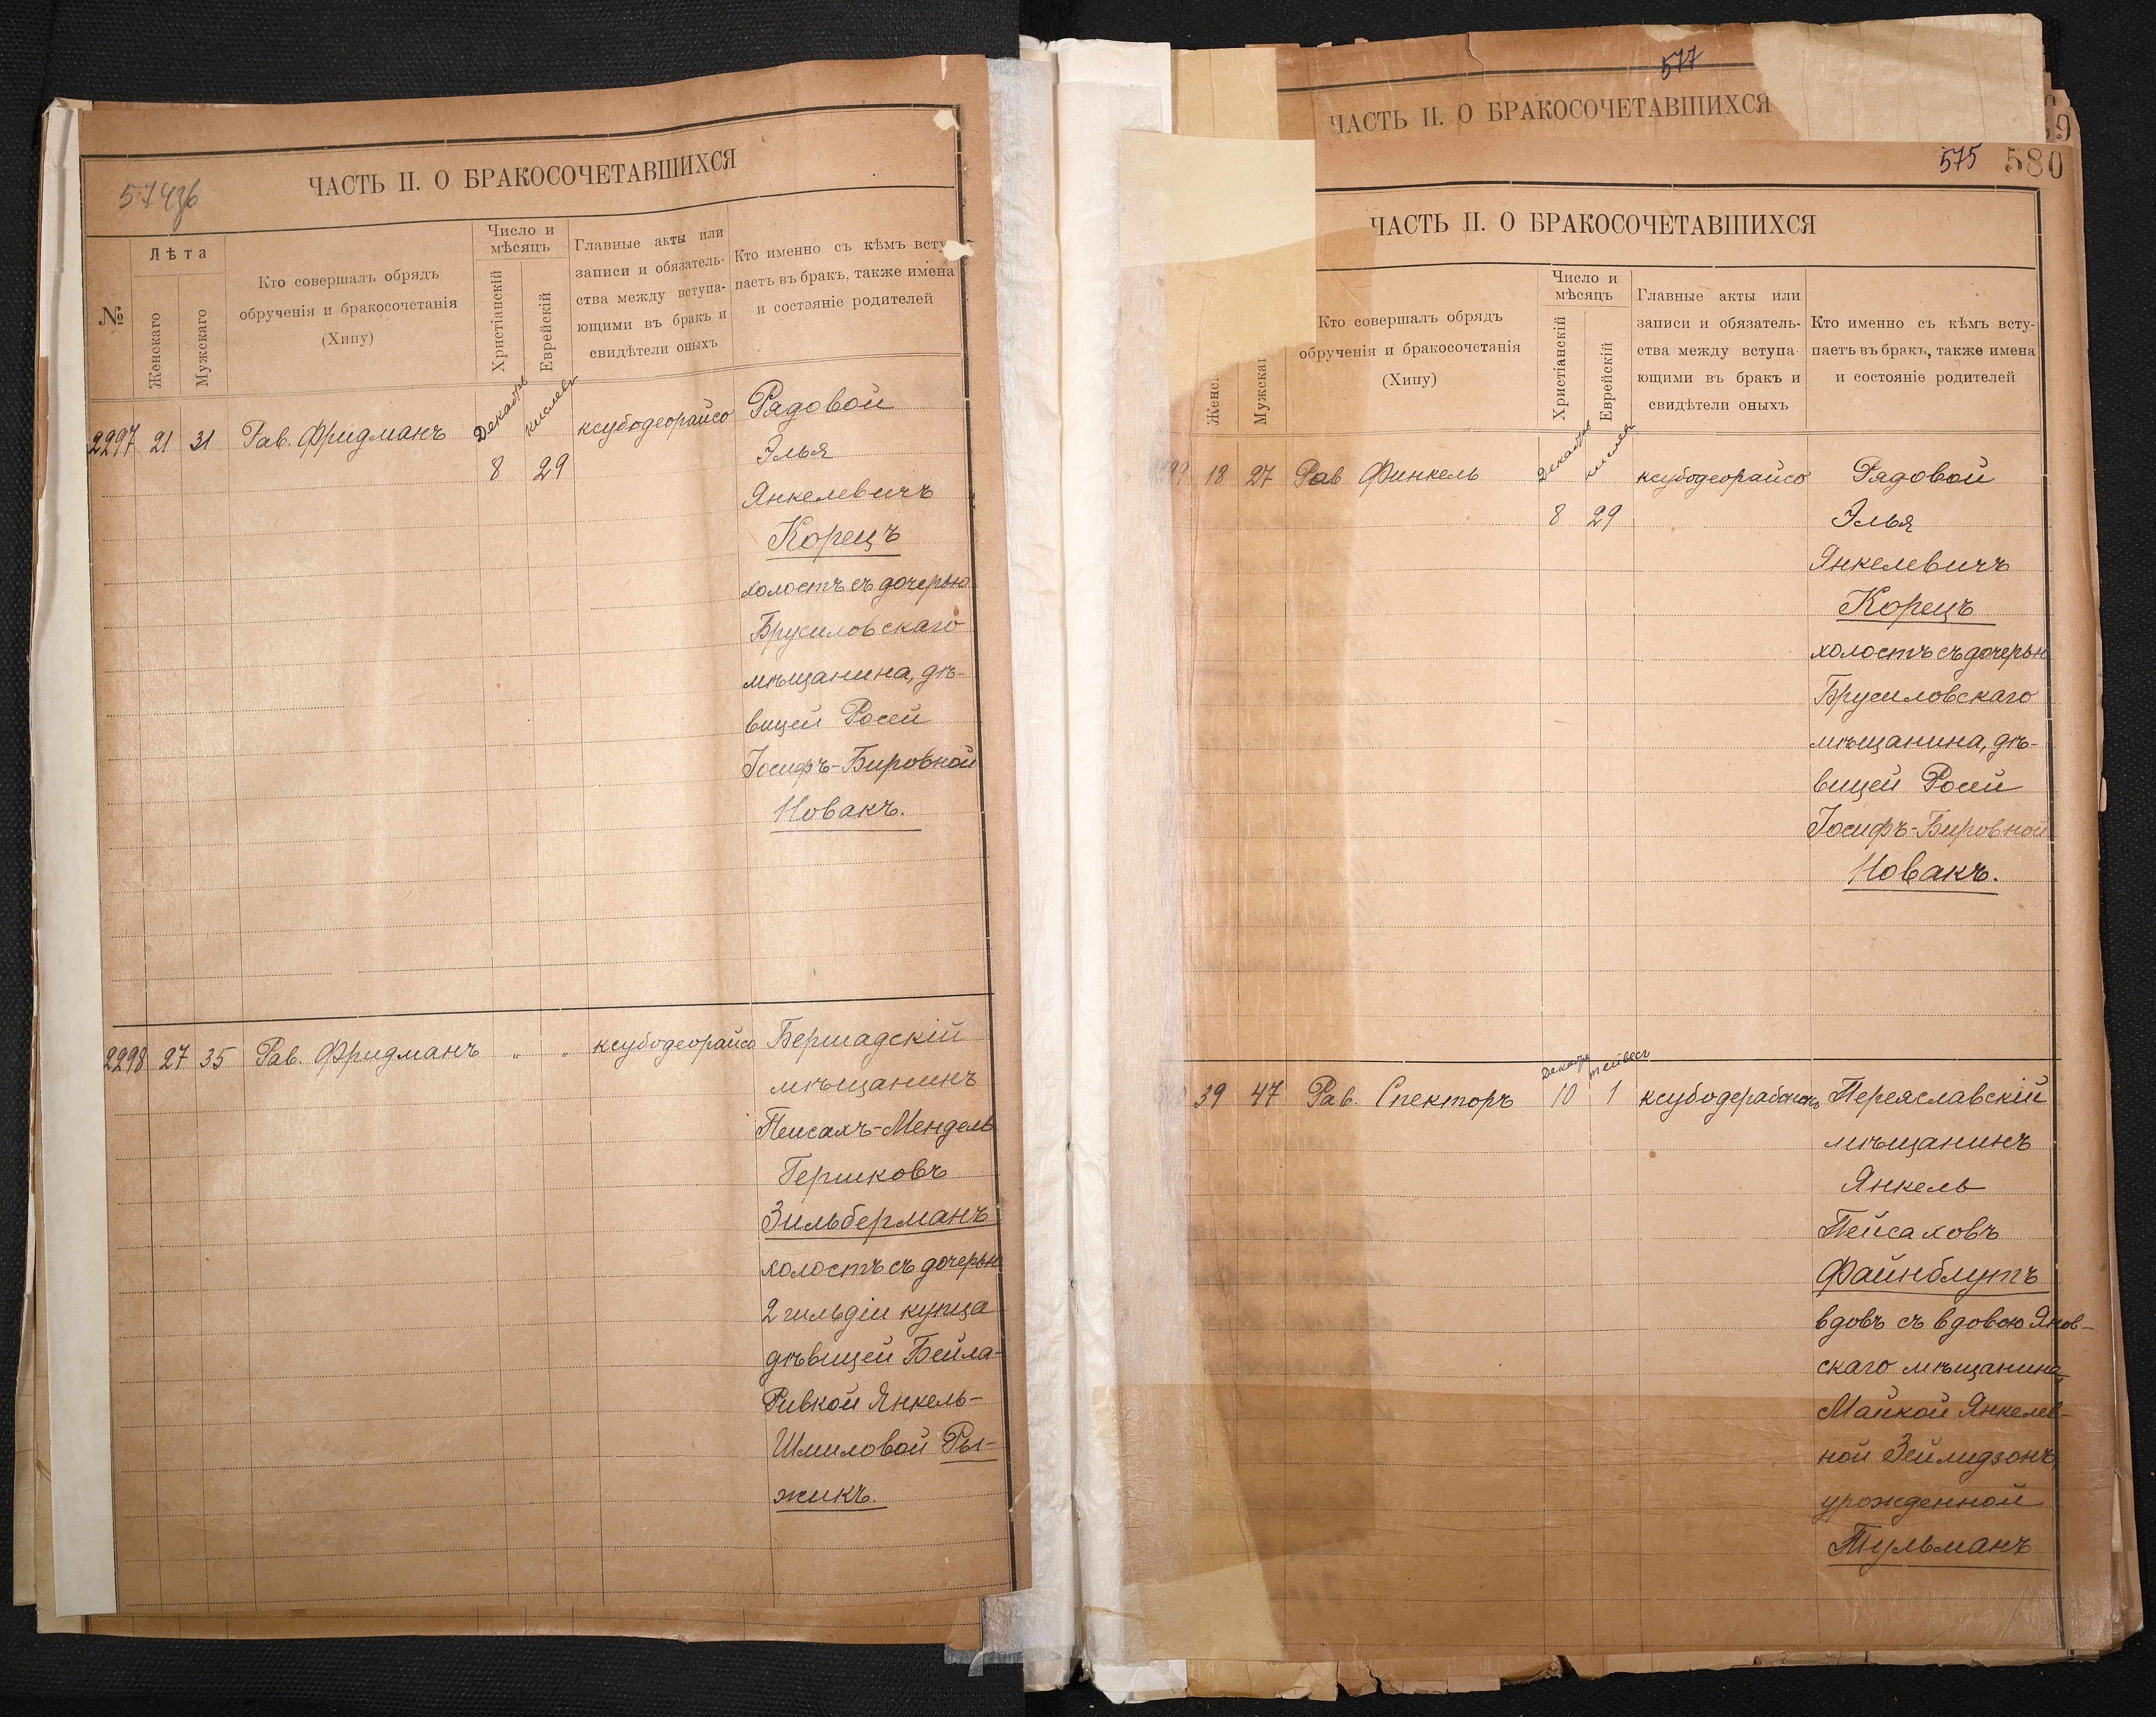 574 об
ЧАСТЬ II. О БРАКОСОЧЕТАВШИХСЯ
№
Лѣта
Женскаго
Мужскаго
Кто совершалъ обрядъ
обрученія и бракосочетанія
(Хипу)
Число и
мѣсяцъ
Христіанскій
Еврейскій
Главные акты или
записи и обязатель-
ства между вступа-
ющими въ бракъ и
свидѣтели оныхъ
Кто именно съ кѣмъ всту-
паетъ въ бракъ, также имена
и состояніе родителей
2297 21 31 Рав. Фридманъ Декабрь кислевъ ксубодеорайсо Рядовой
8 29 Элья
Янкелевичъ
Корецъ
холостъ съ дочерью
Брусиловскаго
мѣщанина, дѣ-
вицей Росей
Іосифъ-Бировной
Новакъ.
2298 27 35 Рав. Фридманъ " " ксубодеорайсо Бершадскій
мѣщанинъ
Пейсахъ-Мендель
Гершковъ
Зильберманъ
холостъ съ дочерью
2 гильдіи купца
дѣвицей Бейла-
Ривкой Янкель-
Шмиловой Ры-
жикъ.
577
ЧАСТЬ II. О БРАКОСОЧЕТАВШИХСЯ
9
575 580
ЧАСТЬ II. О БРАКОСОЧЕТАВШИХСЯ
Женск
Мужскаг
Кто совершалъ обрядъ
обрученія и бракосочетанія
(Хипу)
Число и
мѣсяцъ
Христіанскій
Еврейскій
Главные акты или
записи и обязатель-
ства между вступа-
ющими въ бракъ и
свидѣтели оныхъ
Кто именно съ кѣмъ всту-
паетъ въ бракъ, также имена
и состояніе родителей
99 18 27 Рав Финкель Декабрь кислевъ ксубодеорайсо Рядовой
8 29 Элья
Янкелевичъ
Корецъ
холостъ съ дочерью
Брусиловскаго
мѣщанина, дѣ-
вицей Росей
Іосифъ-Бировной
Новакъ.
39 47 Рав. Спекторъ Декабрь тейвесъ
10 1 Переяславскій
мѣщанинъ
Янкель
Пейсаховъ
Файнблутъ
вдовъ съ вдовою Янов-
скаго мѣщанина
Майкой Янкелев-
ной Зейлидзонъ,
урожденной
Тульманъ